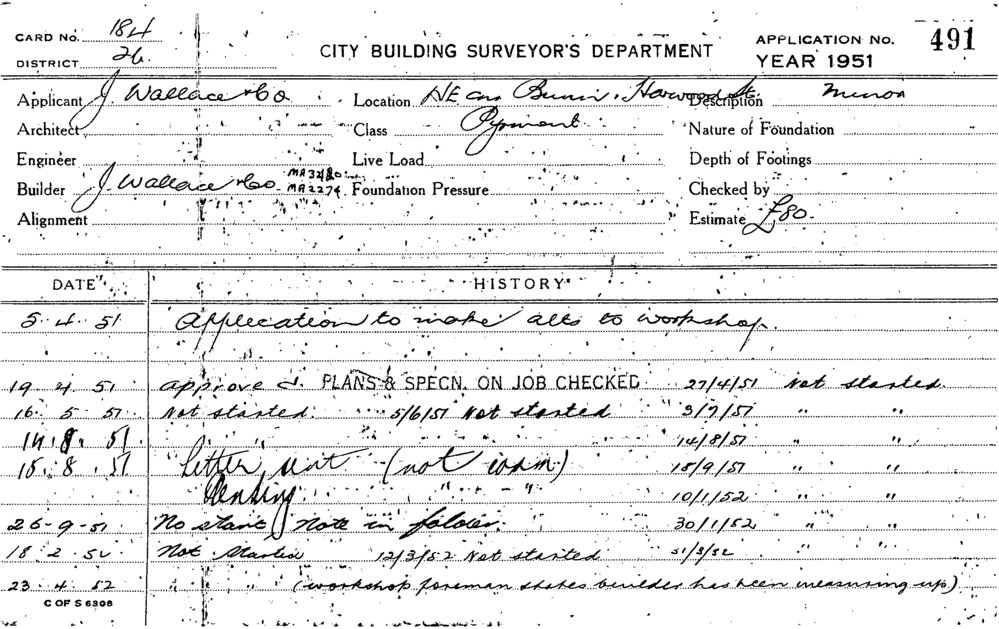 CARD No. 184
DISTRICT 26
CITY BUILDING SURVEYOR'S DEPARTMENT
APPLICATION No. 491
YEAR 1951
Applicant J. Wallace & Co Location NE cnr Bunn, Harwood St. Description Minor
Architect Class Pyrmont Nature of Foundation
Engineer Live Load Depth of Footings
Builder J. Wallace & Co. MA3480 MA2274 Foundation Pressure Checked by
Alignment Estimate £80.
DATE HISTORY
5.4.51 Application to make alts to workshop.
19.4.51 approved. PLANS & SPECN. ON JOB CHECKED 27/4/51 Not started.
16.5.51 Not started. 5/6/51 Not started 3/7/51 " "
14.8.51 " " 14/8/51 " "
15.8.51 Letter sent (not 18/9/51 " "
Pending " - " 10/1/52 " "
26-9-51 No start Note in folder. 30/1/52 " "
18.2.52 Not Started 12/3/52 Not started 31/3/52 " "
23.4.52 " " (workshop foreman states builder has been measuring up)
C OF S 6306